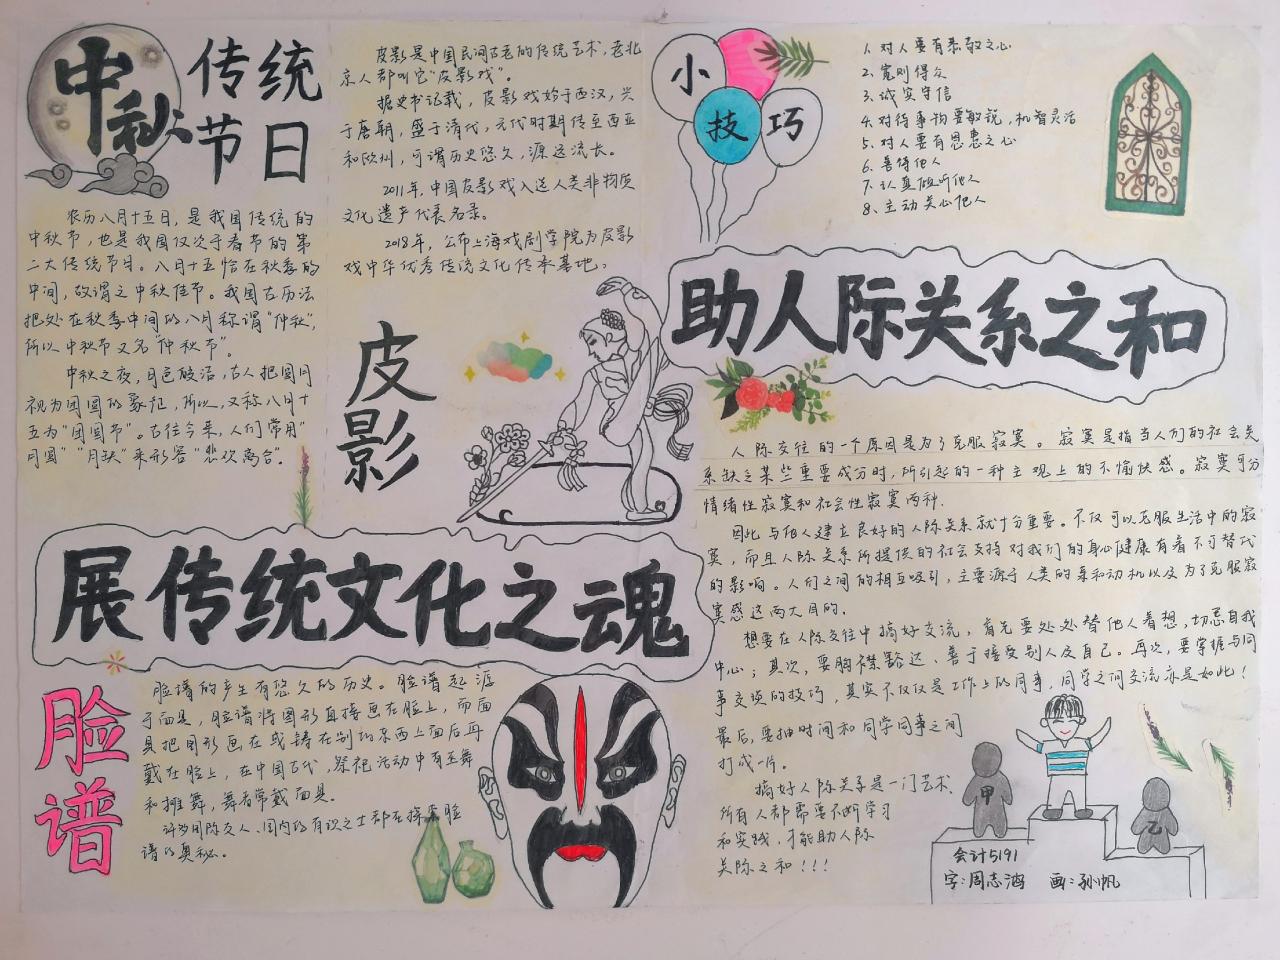 中秋
传统
节日
农历八月十五日，是我国传统的
中秋节，也是我国仅次于春节的第
二大传统节日。八月十五恰在秋季的
中间，故谓之中秋佳节。我国古历法
把处在秋季中间的八月称谓“仲秋”，
所以中秋节又名“仲秋节”。
中秋之夜，月色皎洁，古人把圆月
视为团圆的象征，所以，又称八月十
五为“团圆节”。古往今来，人们常用“
月圆”“月缺”来形容“悲欢离合”。
皮影是中国民间古老的传统艺术，老北
京人都叫它“皮影戏”。
据史书记载，皮影戏始于西汉，兴
于唐朝，盛于清代，元代时期传至西亚
和欧州，可谓历史悠久，源远流长。
2011年，中国皮影戏入选人类非物质
文化遗产代表名录。
2018年，公布上海戏剧学院为皮影
戏中华优秀传统文化传承基地。
皮影
展传统文化之魂
脸谱
脸谱的产生有悠久的历史。脸谱起源
于面具，脸谱将图形直接画在脸上，而面
具把图形画在或铸在别的东西上面后再
戴在脸上，在中国古代，祭祀活动中有巫舞
和摊舞，舞者常戴面具。
许多国际友人、国内的有识之士都在探索脸
谱的奥秘。
小技巧
1.对人要有恭敬之心
2.宽则得众
3.诚实守信
4.对待事物要敏锐，机智灵活
5.对人要有恩惠之心
6.善待他人
7.认真倾听他人
8.主动关心他人
助人际关系之和
人际交往的一个原因是为了克服寂寞。寂寞是指当人们的社会关
系缺乏某些重要成分时，所引起的一种主观上的不愉快感。寂寞可分
情绪性寂寞和社会性寂寞两种.
因此与他人建立良好的人际关系就十分重要。不仅可以克服生活中的寂
寞，而且人际关系所提供的社会支持对我们的身心健康有着不可替代
的影响。人们之间的相互吸引，主要源于人类的亲和动机以及为了克服寂
寞感这两大目的.
想要在人际交往中搞好交流，首先要处处替他人着想，切忌自我
中心；其次，要胸襟豁达、善于接受别人及自己。再次，要掌握与同
事交谈的技巧，其实不仅仅是工作上的同事，同学之间交流亦是如此！
最后，要抽时间和同学同事之间
打成一片。
搞好人际关系是一门艺术.
所有人都需要不断学习
和实践，才能助人际
关际之和！！！
甲
乙
会计5191
字：周志鸿 画：孙帆